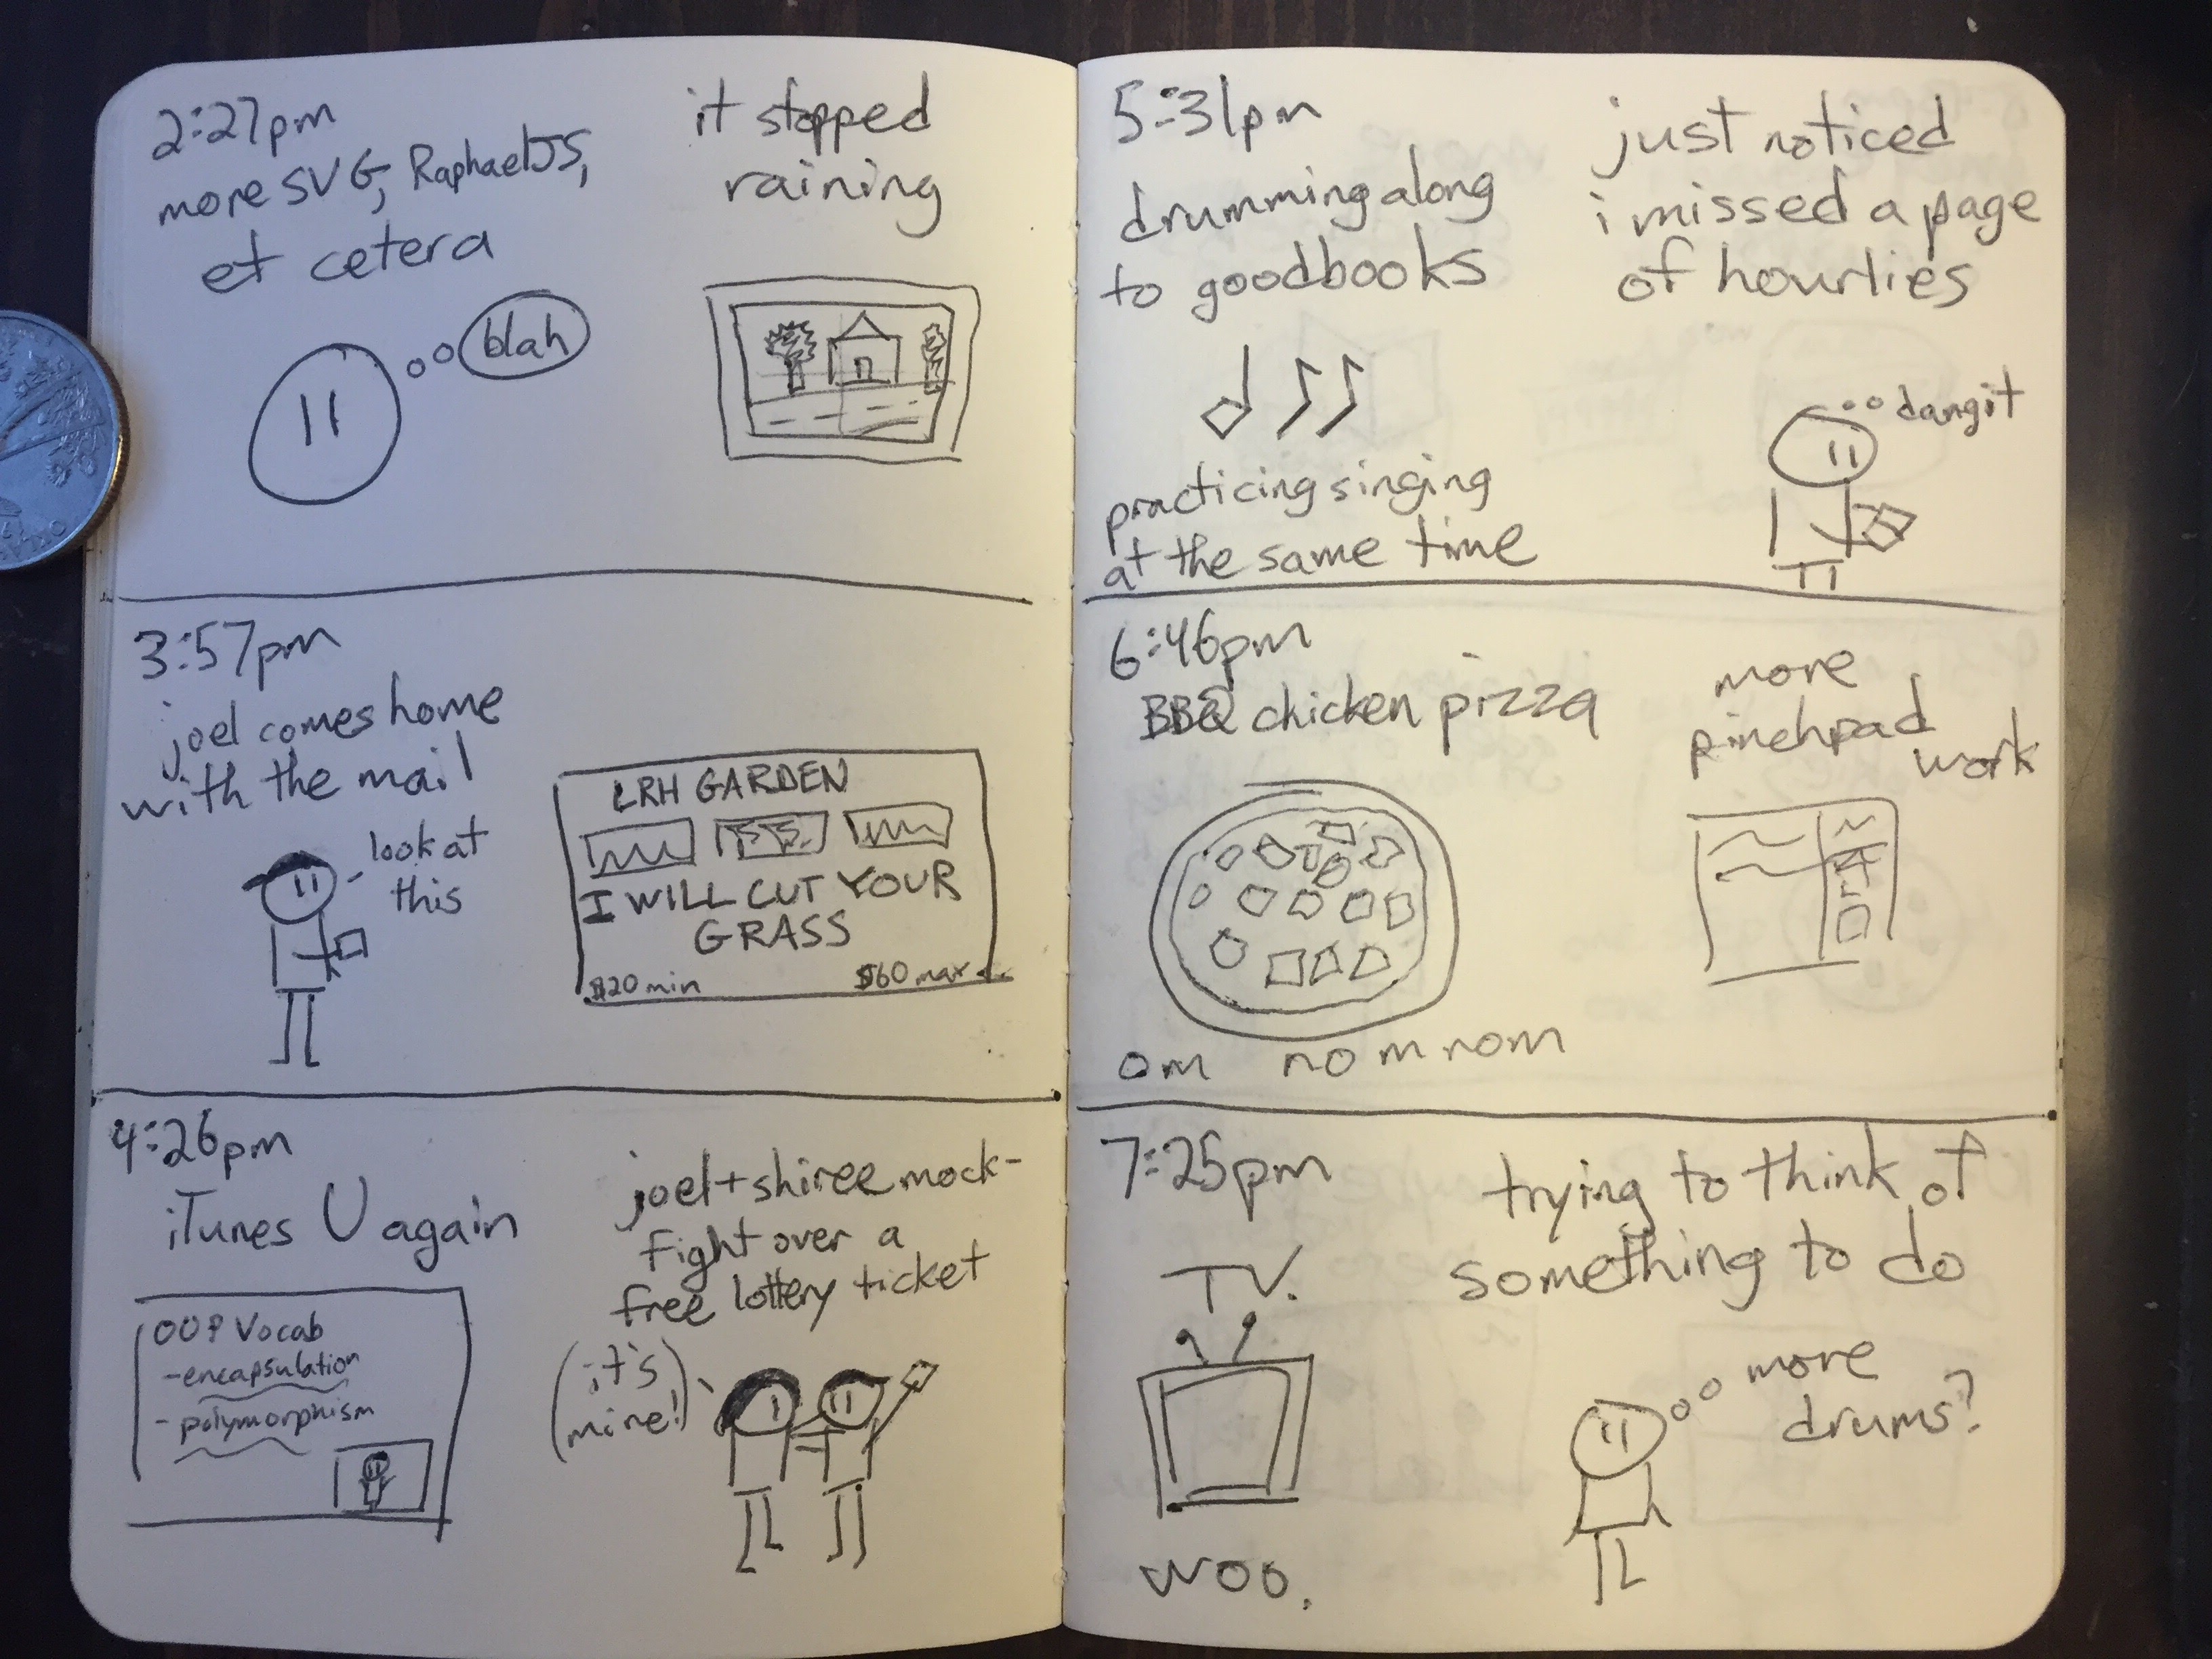 2:27pm
more SVG, RaphaelJS,
et cetera
blah
it stopped
raining
3:57pm
joel comes home
with the mail
look at
this
LRH GARDEN
I WILL CUT YOUR
GRASS
$20 min
$60 max
4:26pm
iTunes U again
OOP Vocab
-encapsulation
-polymorphism
joel+shiree mock-
fight over a
free lottery ticket
(it's
mine!)
5:31pm
drumming along
to goodbooks
practicing singing
at the same time
just noticed
i missed a page
of hourlies
dangit
6:46pm
BBQ chicken pizza
om nom nom
more
pinchpad
work
7:25pm
TV.
woo.
trying to think of
something to do
more
drums?